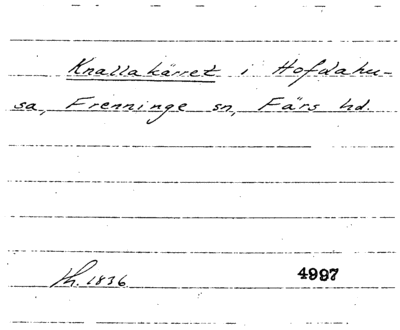 Knallakärret i Hofdahu-
sa, Frenninge sn, Färs hd.
Th. 1836 4997